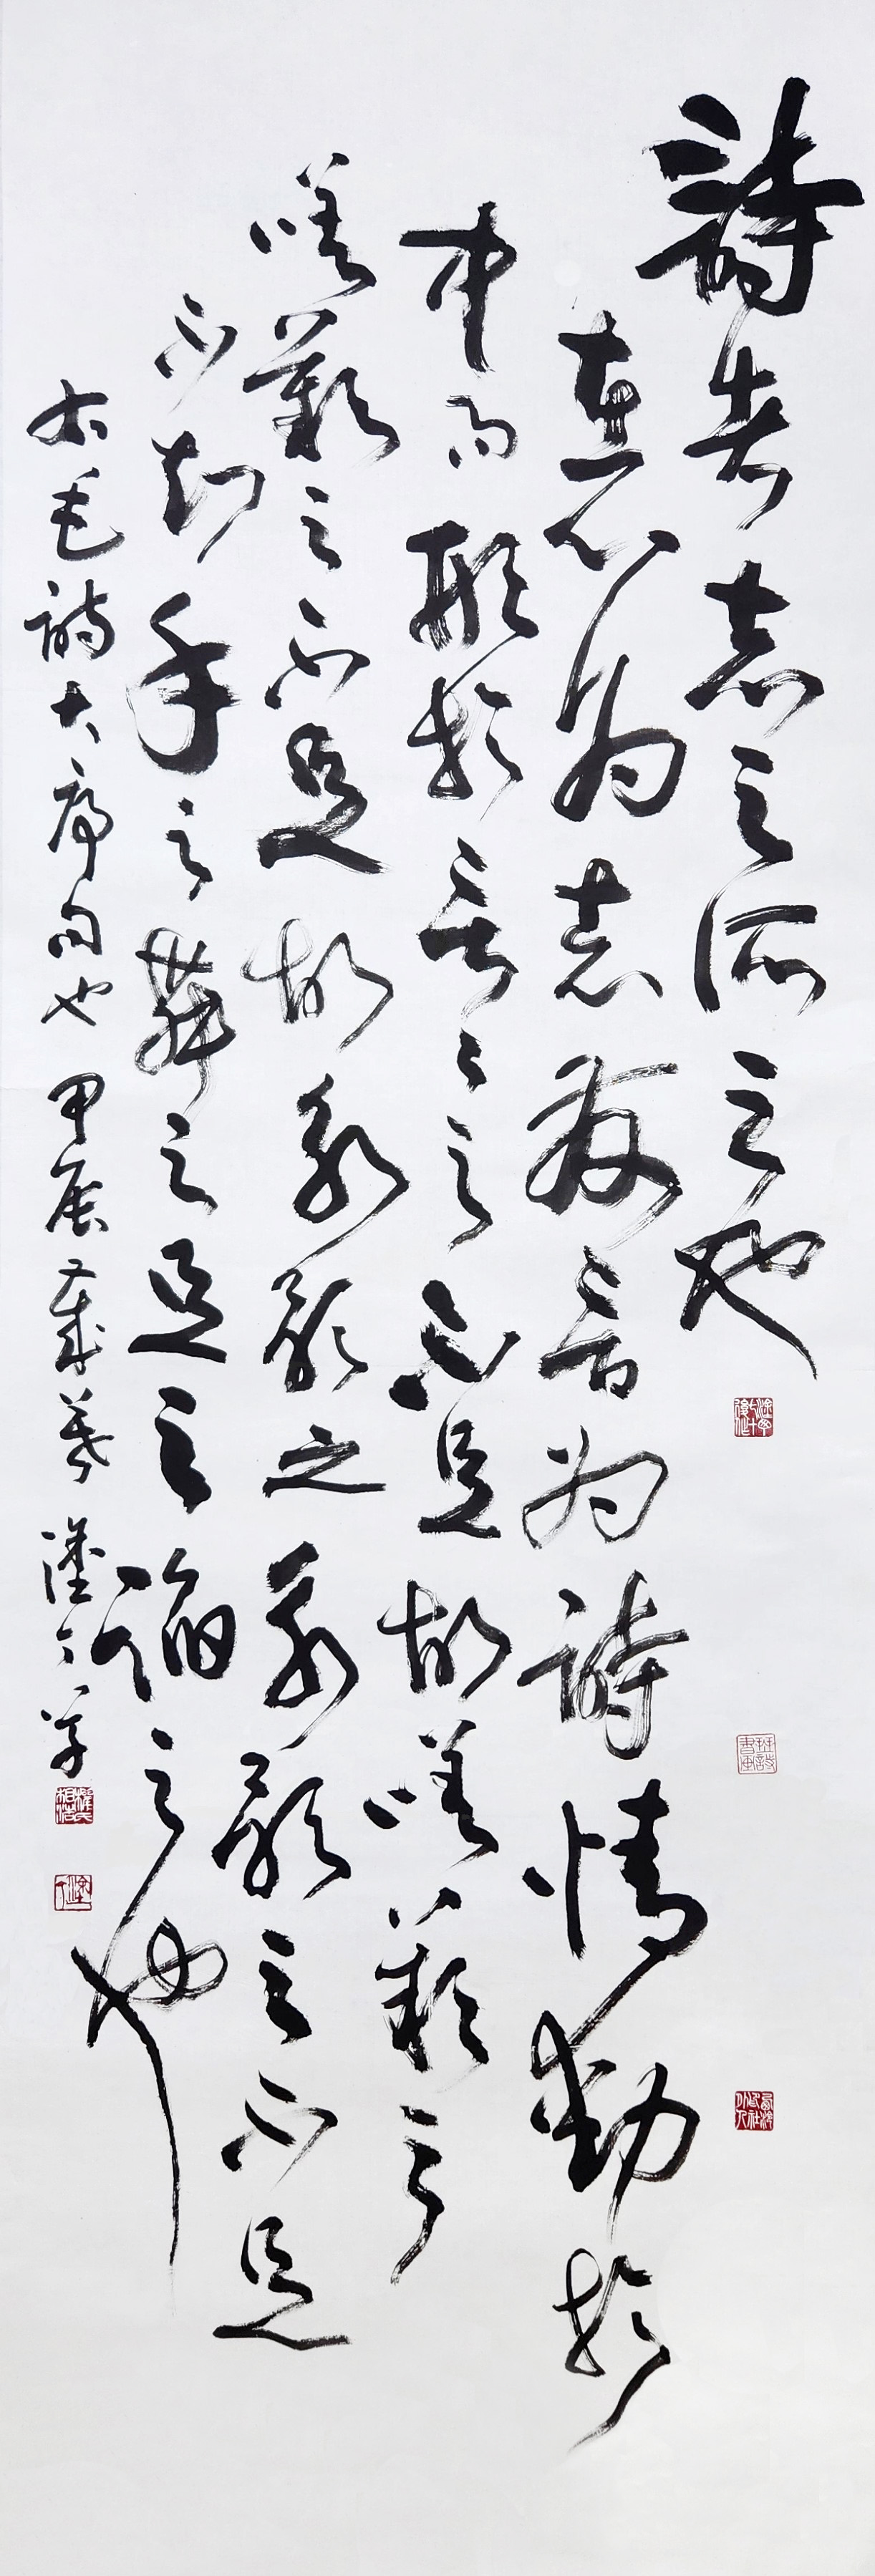 詩者志之所之也
在心為志發言為詩情動於
中而形於言〻之不足故嗟歎之
嗟歎之不足故永歌之永歌之不足
不知手之舞之足之蹈之也
右毛詩大序句也甲辰歲暮塗草